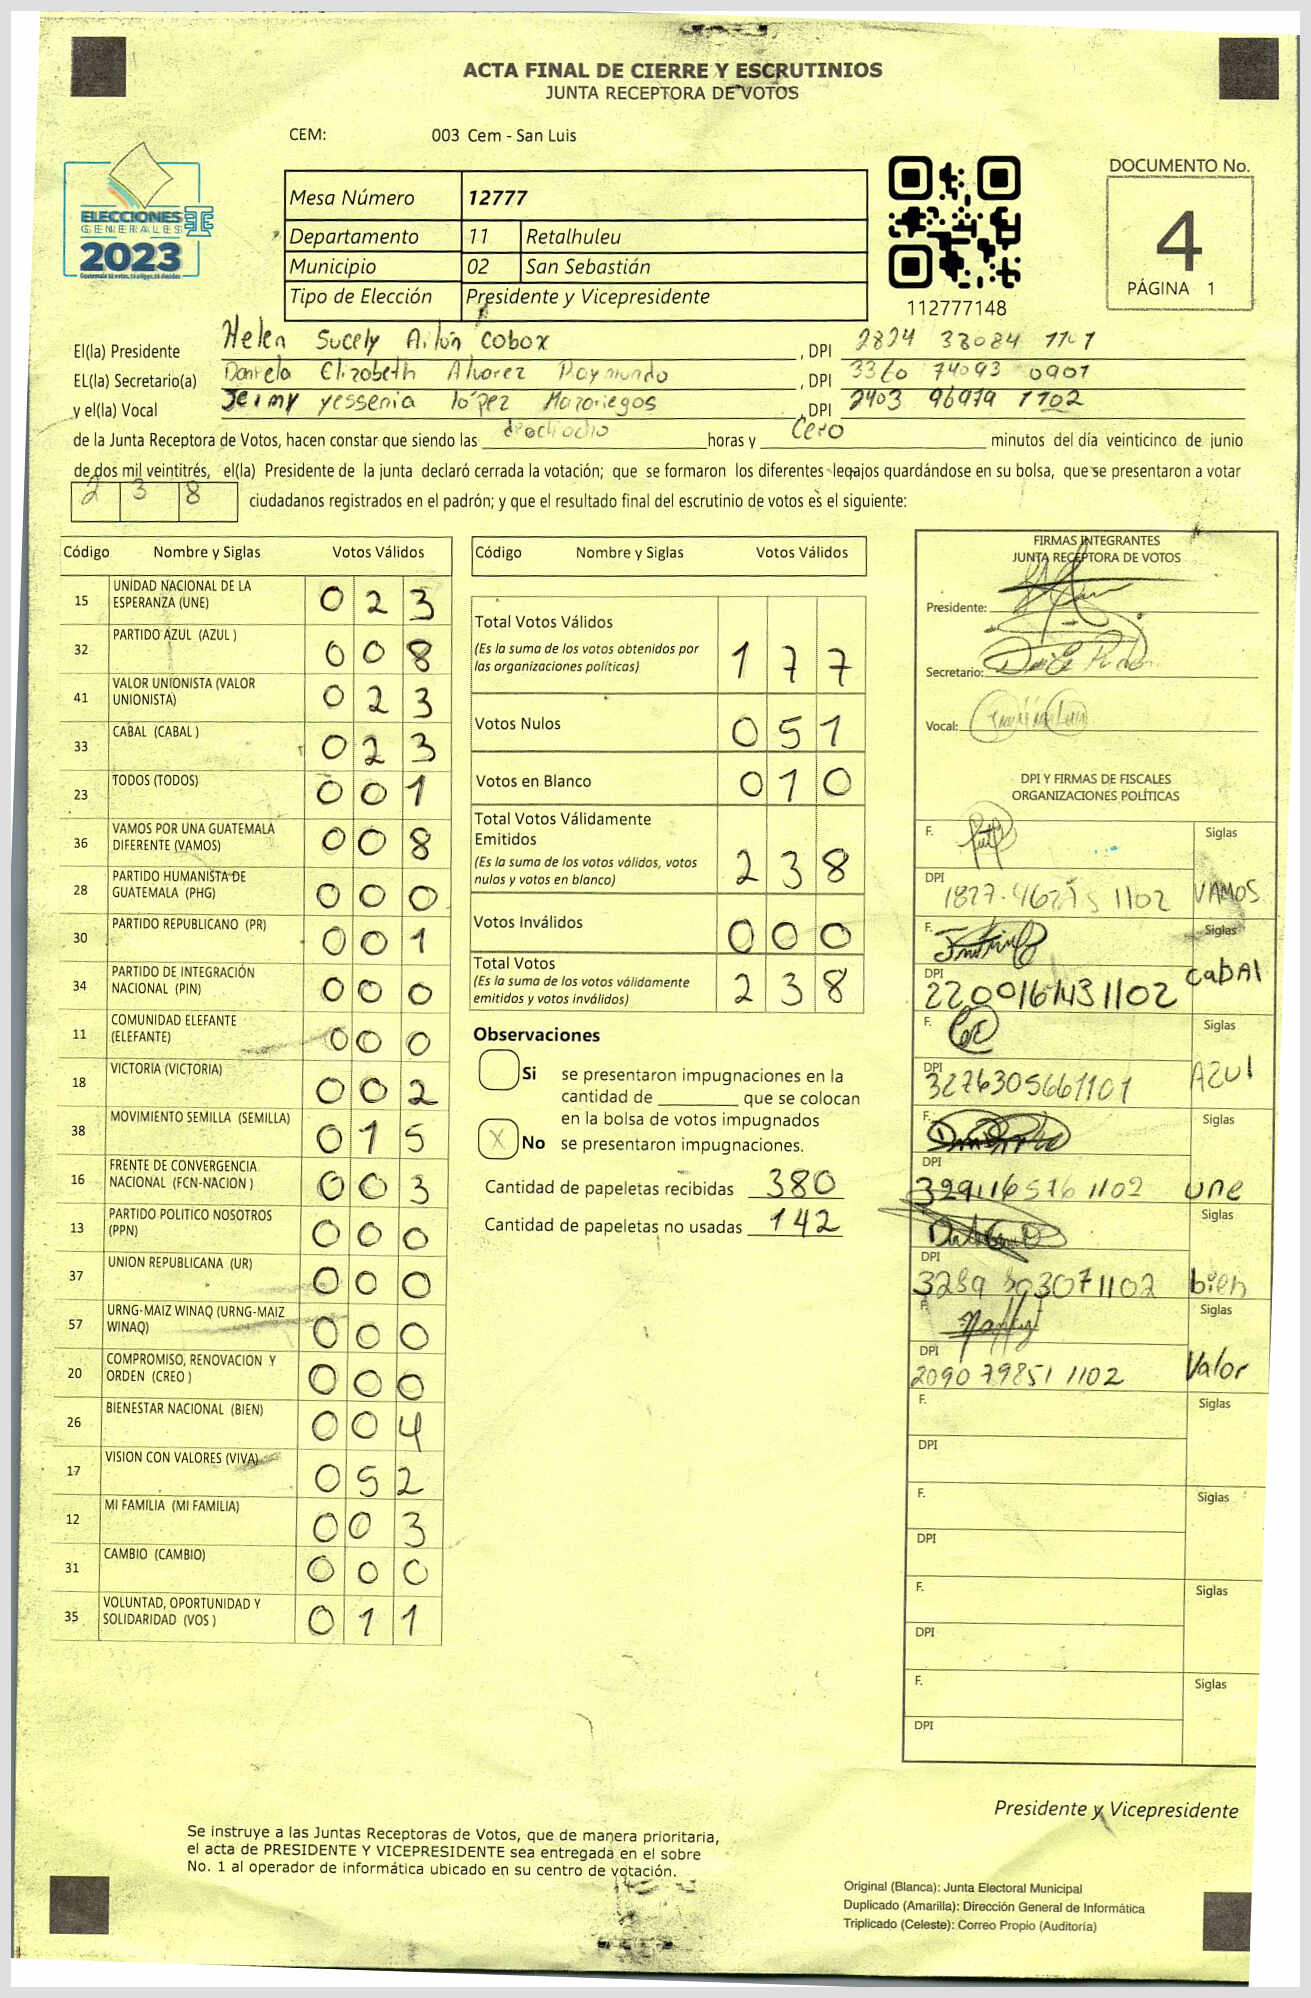 ACTA FINAL DE CIERRE Y ESCRUTINIOS
JUNTA RECEPTORA DE VOTOS
CEM: 003 Cem - San Luis
ELECCIONES
GENERALES
2023
Mesa Número 12777
Departamento 11 Retalhuleu
Municipio 02 San Sebastián
Tipo de Elección Presidente y Vicepresidente
112777148
DOCUMENTO No.
4
PÁGINA 1
El(la) Presidente Helen Sucely Ailón Cobox, DPI 2824 38084 1101
EL(la) Secretario(a) Daniela Elizabeth Alvarez Raymundo, DPI 3360 74093 0901
y el(la) Vocal Jeimy yessenia lópez Mazariegos, DPI 2403 96979 1102
de la Junta Receptora de Votos, hacen constar que siendo las dieciocho horas y Cero minutos del día veinticinco de junio
de dos mil veintitrés, el(la) Presidente de la junta declaró cerrada la votación; que se formaron los diferentes legajos guardándose en su bolsa, que se presentaron a votar
2 3 8 ciudadanos registrados en el padrón; y que el resultado final del escrutinio de votos es el siguiente:
Código Nombre y Siglas Votos Válidos
15 UNIDAD NACIONAL DE LA ESPERANZA (UNE) 0 2 3
32 PARTIDO AZUL (AZUL ) 0 0 8
41 VALOR UNIONISTA (VALOR UNIONISTA) 0 2 3
33 CABAL (CABAL ) 0 2 3
23 TODOS (TODOS) 0 0 1
36 VAMOS POR UNA GUATEMALA DIFERENTE (VAMOS) 0 0 8
28 PARTIDO HUMANISTA DE GUATEMALA (PHG) 0 0 0
30 PARTIDO REPUBLICANO (PR) 0 0 1
34 PARTIDO DE INTEGRACIÓN NACIONAL (PIN) 0 0 0
11 COMUNIDAD ELEFANTE (ELEFANTE) 0 0 0
18 VICTORIA (VICTORIA) 0 0 2
38 MOVIMIENTO SEMILLA (SEMILLA) 0 1 5
16 FRENTE DE CONVERGENCIA NACIONAL (FCN-NACION ) 0 0 3
13 PARTIDO POLITICO NOSOTROS (PPN) 0 0 0
37 UNION REPUBLICANA (UR) 0 0 0
57 URNG-MAIZ WINAQ (URNG-MAIZ WINAQ) 0 0 0
20 COMPROMISO, RENOVACION Y ORDEN (CREO ) 0 0 0
26 BIENESTAR NACIONAL (BIEN) 0 0 4
17 VISION CON VALORES (VIVA) 0 5 2
12 MI FAMILIA (MI FAMILIA) 0 0 3
31 CAMBIO (CAMBIO) 0 0 0
35 VOLUNTAD, OPORTUNIDAD Y SOLIDARIDAD (VOS ) 0 1 1
Código Nombre y Siglas Votos Válidos
Total Votos Válidos
(Es la suma de los votos obtenidos por las organizaciones políticas) 1 7 7
Votos Nulos 0 5 1
Votos en Blanco 0 1 0
Total Votos Válidamente Emitidos
(Es la suma de los votos válidos, votos nulos y votos en blanco) 2 3 8
Votos Inválidos 0 0 0
Total Votos
(Es la suma de los votos válidamente emitidos y votos inválidos) 2 3 8
Observaciones
Si se presentaron impugnaciones en la
cantidad de ________ que se colocan
en la bolsa de votos impugnados
X No se presentaron impugnaciones.
Cantidad de papeletas recibidas 380
Cantidad de papeletas no usadas 142
FIRMAS INTEGRANTES
JUNTA RECEPTORA DE VOTOS
Presidente:
Secretario:
Vocal:
DPI Y FIRMAS DE FISCALES
ORGANIZACIONES POLÍTICAS
F. Siglas
DPI 1102 VAMOS
F. Siglas
DPI 1102 CABAL
F. Siglas
DPI 3276305661101 AZUL
F. Siglas
DPI 1102 une
F. Siglas
DPI 1102 bien
F. Siglas
DPI 2090 79851 1102 Valor
F. Siglas
DPI
F. Siglas
DPI
F. Siglas
DPI
F. Siglas
DPI
Presidente y Vicepresidente
Se instruye a las Juntas Receptoras de Votos, que de manera prioritaria,
el acta de PRESIDENTE Y VICEPRESIDENTE sea entregada en el sobre
No. 1 al operador de informática ubicado en su centro de votación.
Original (Blanca): Junta Electoral Municipal
Duplicado (Amarilla): Dirección General de Informática
Triplicado (Celeste): Correo Propio (Auditoría)